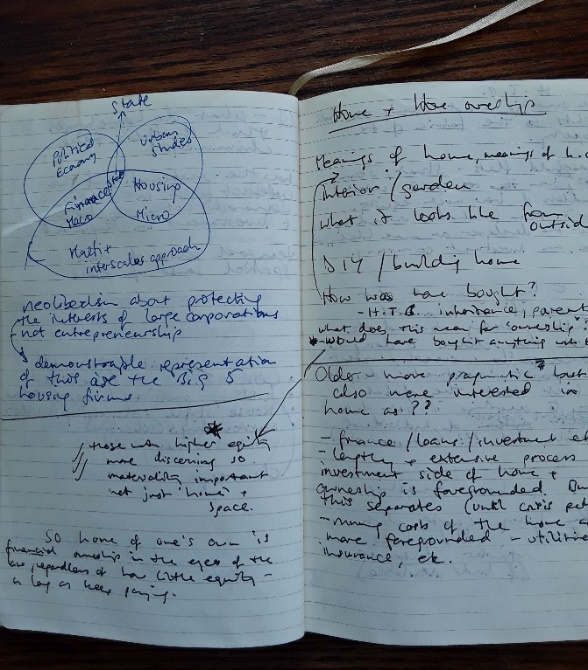 State
Political
Economy
Urban
Studies
Finance
Macro
Housing
Micro
Multi +
interscales approach
neoliberalism about protecting
the interests of large corporations
not entrepreneurship
demonstrable representation
of this are the Big 5
housing firms
those with higher equity
more discerning so
materiality important
not just 'home' +
space.
So home of one's own is
financial ownership in the eyes of the
law, regardless of how little equity -
as long as keep paying.
Home + Home ownership
Meanings of home, meanings of h.o
interior / garden
what it looks like from
outside
DIY / building home
How was home bought?
- H.T.B. inheritance, parent
what does this mean for ownership
would have bought anything
Older - more pragmatic? but
also were interested in
home as ??
- finance / loans / investment
- lengthy + extensive process
investment side of home +
ownership is foregrounded. Bu
this separates (until crisis
- running costs of the home
more foregrounded - utilities
insurance, etc.